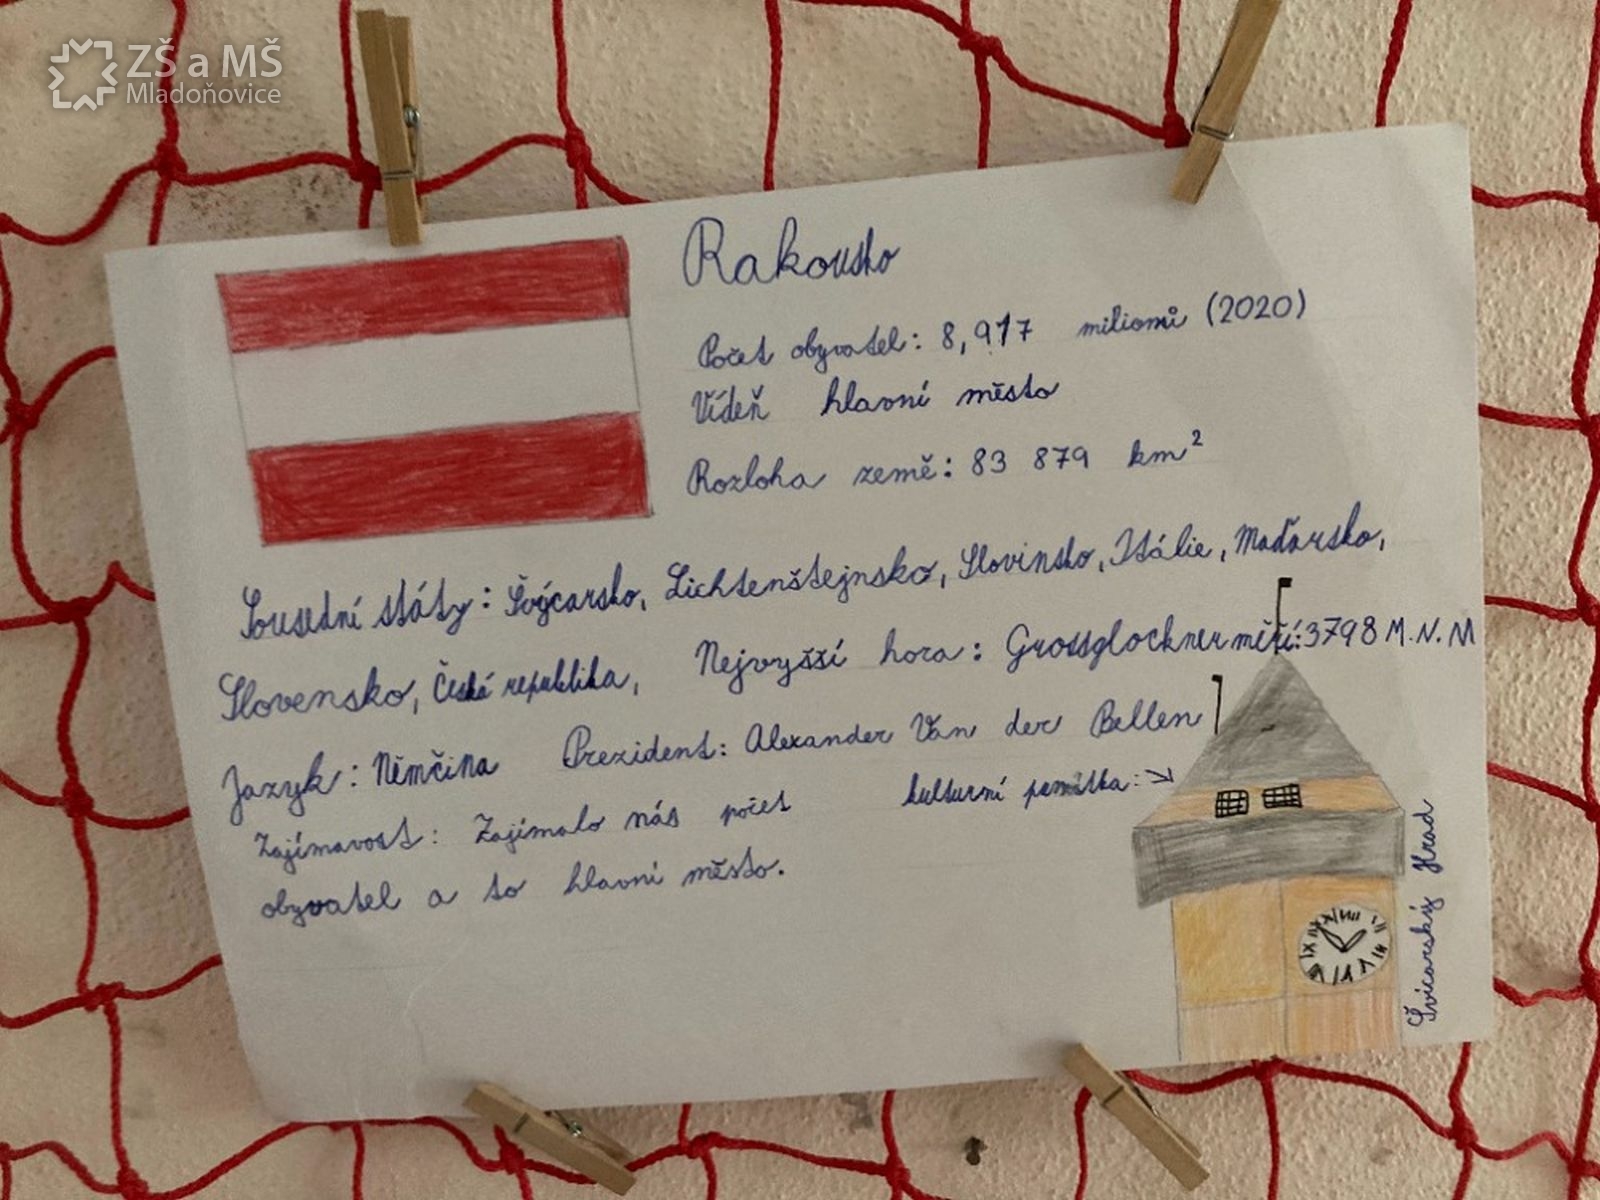 ZŠ a MŠ
Mladoňovice
Rakousko
Počet obyvatel: 8,917 milionů (2020)
Vídeň hlavní město
Rozloha země: 83 879 km²
Sousední státy: Švýcarsko, Lichtenštejnsko, Slovinsko, Itálie, Maďarsko,
Slovensko, Česká republika, Nejvyšší hora: Grossglockner měří: 3798 M.N.M
Jazyk: Němčina Prezident: Alexander Van der Bellen
Zajímavost: Zajímalo nás počet kulturní památka: →
obyvatel a to hlavní město.
Švicarský Hrad